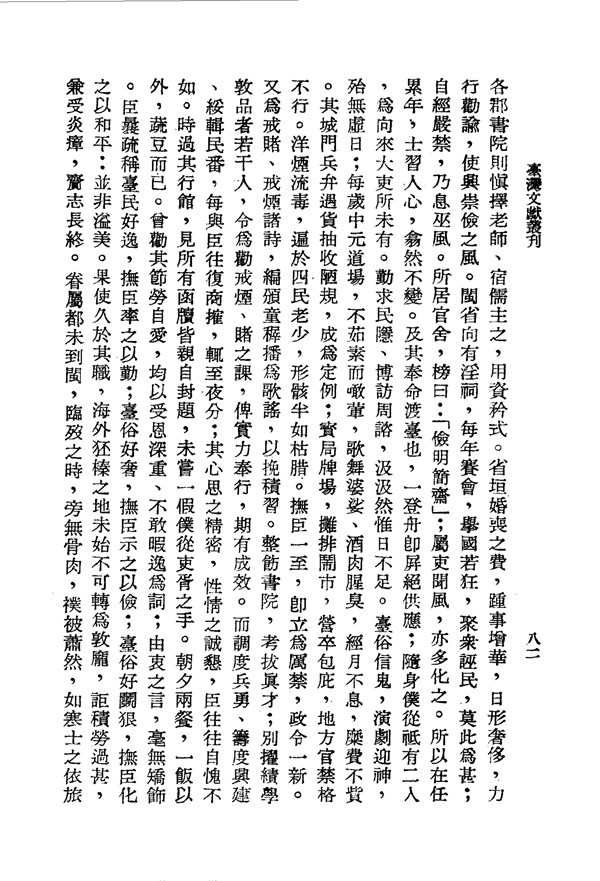 臺灣文獻叢刊
八二
各郡書院則慎擇老師、宿儒主之，用資矜式。省垣婚喪之費，踵事增華，日形奢侈，力
行勸諭，使興崇儉之風。閩省向有淫祠，每年賽會，舉國若狂，聚衆誣民，莫此爲甚；
自經嚴禁，乃息巫風。所居官舍，榜曰：「儉明簡齋」；屬吏聞風，亦多化之。所以在任
累年，士習人心，翕然不變。及其奉命渡臺也，一登舟卽屏絕供應；隨身僕從祇有二人
，爲向來大吏所未有。勤求民隱、博訪周諮，汲汲然惟日不足。臺俗信鬼，演劇迎神，
殆無虛日；每歲中元道場，不茹素而啖葷，歌舞婆娑、酒肉腥臭，經月不息，糜費不貲
。其城門兵弁過貨抽收陋規，成爲定例；賓局牌場，攤排鬧市，營卒包庇，地方官禁格
不行。洋煙流毒，遍於四民老少，形骸半如枯腊。撫臣一至，卽立爲厲禁，政令一新。
又爲戒賭、戒煙諸詩，編頒童穉播爲歌謠，以挽積習。整飭書院，考拔眞才；別擢績學
敦品者若干人，令爲勸戒煙、賭之課，俾實力奉行，期有成效。而調度兵勇、籌度興建
、綏輯民番，每與臣往復商搉，輒至夜分；其心思之精密，性情之誠懇，臣往往自愧不
如。時過其行館，見所有函牘皆親自封題，未嘗一假僕從吏胥之手。朝夕兩餐，一飯以
外，蔬豆而已。曾勸其節勞自愛，均以受恩深重、不敢暇逸爲詞；由衷之言，毫無矯飾
。臣曩疏稱臺民好逸，撫臣率之以勤；臺俗好奢，撫臣示之以儉；臺俗好鬭狠，撫臣化
之以和平：並非溢美。果使久於其職，海外狉榛之地未始不可轉爲敦龐，詎積勞過甚，
兼受炎瘴，齎志長終。眷屬都未到閩，臨歿之時，旁無骨肉，襆被蕭然，如寒士之依旅